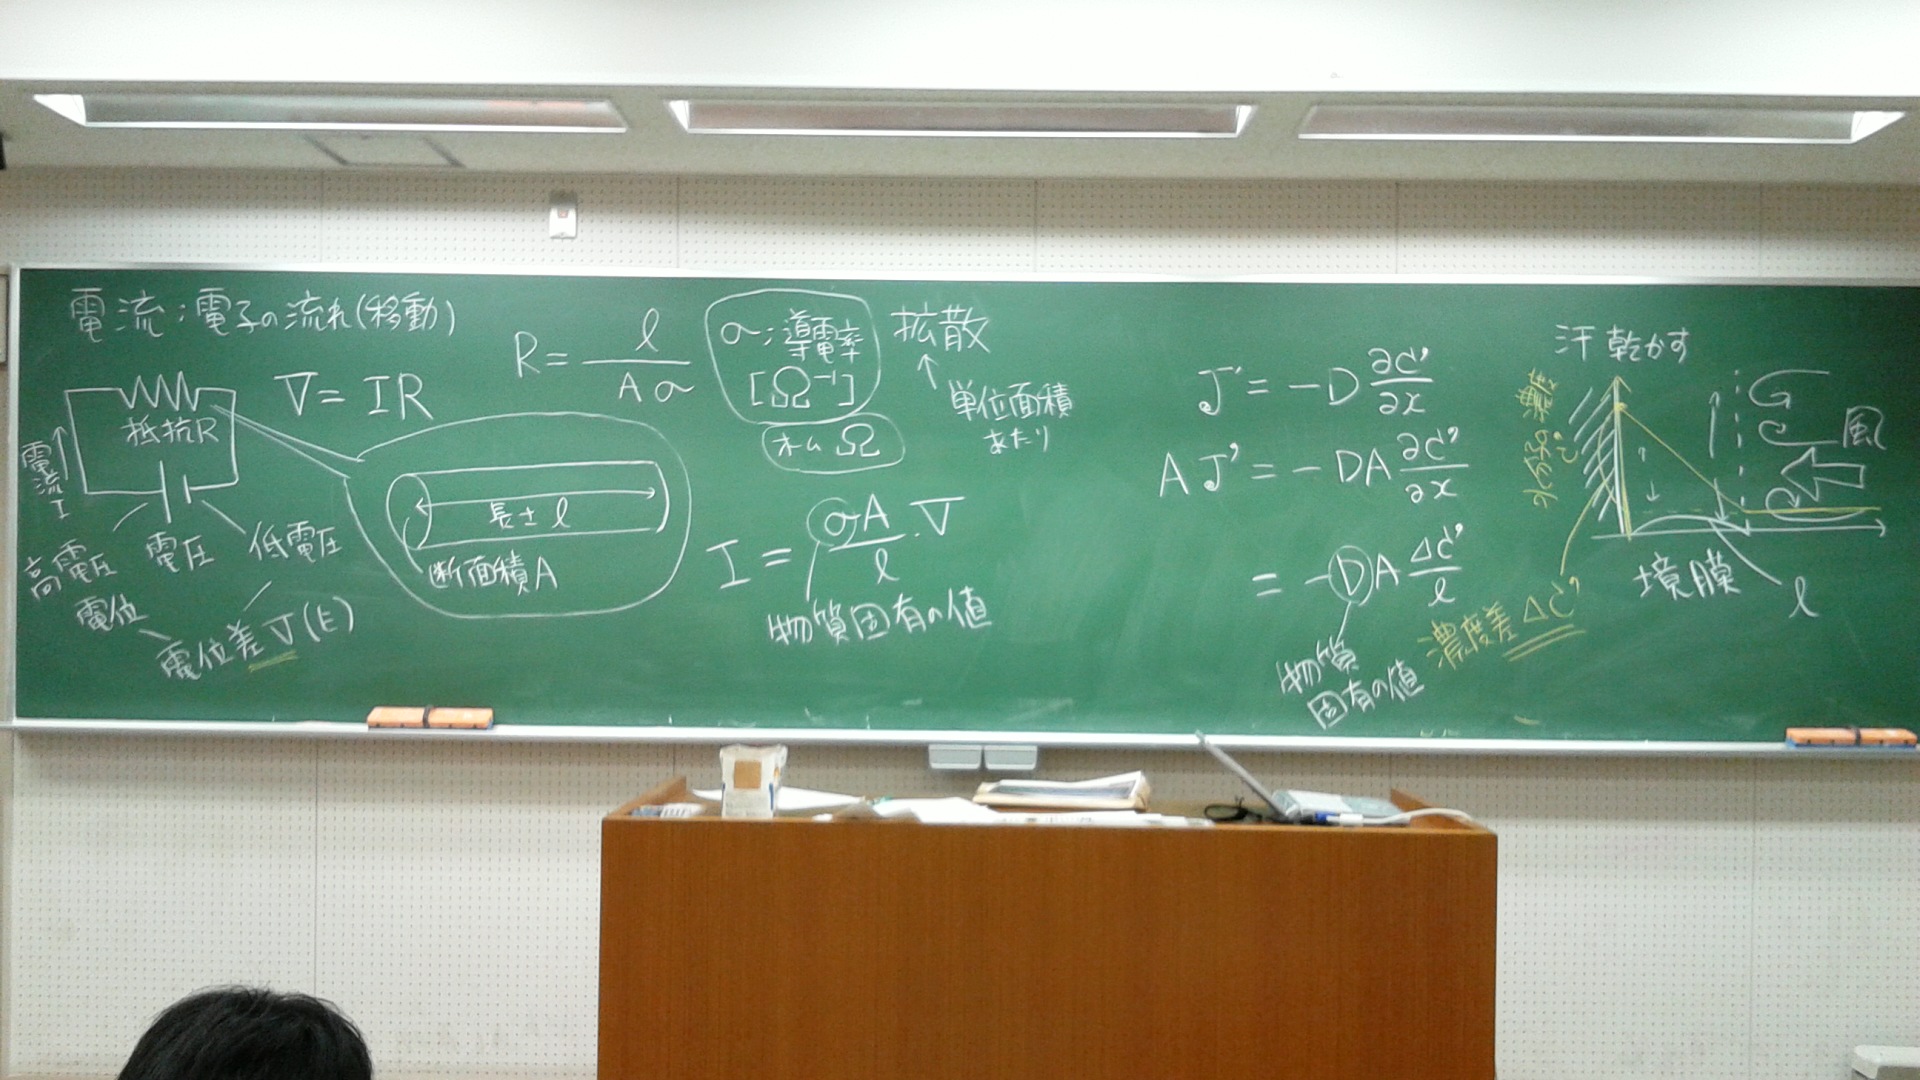 電流:電子の流れ(移動)
抵抗R
電流I
高電圧
電圧
低電圧
電位
電位差V(E)
V=IR
R=l/Aσ
長さl
断面積A
σ:導電率
[Ω⁻¹]
オムΩ
I=σA/l・V
物質固有の値
拡散
↑
単位面積
あたり
J'=-D∂C'/∂x
AJ'=-DA∂C'/∂x
=-DAΔC'/l
物質
固有の値
濃度差ΔC'
汗乾かす
水分
風
境膜
l